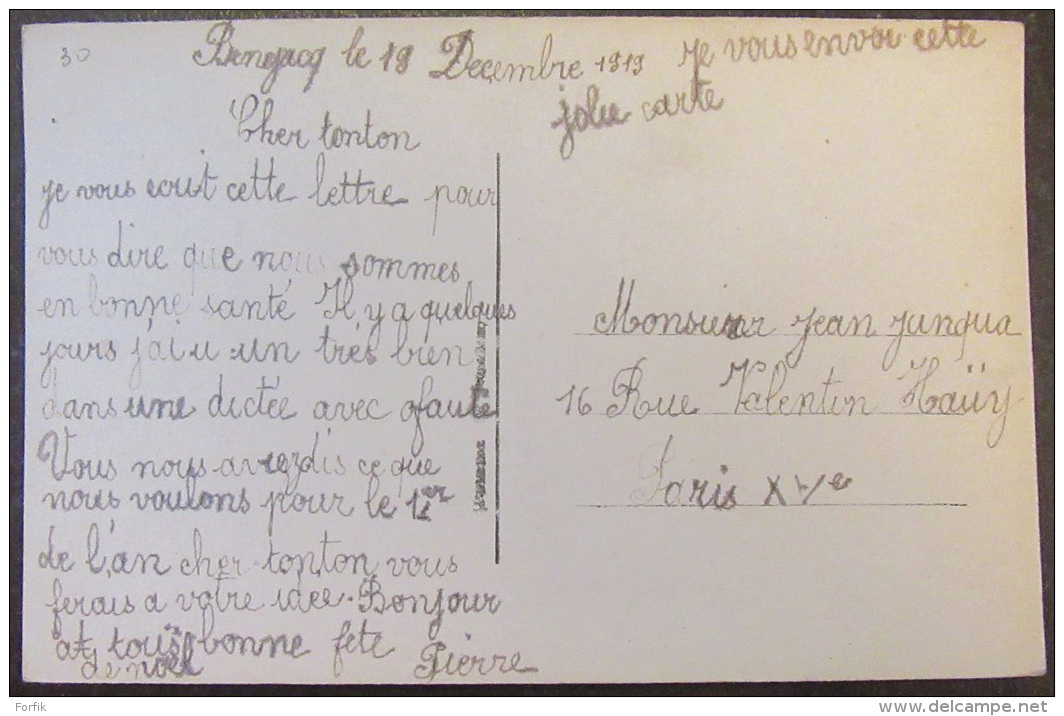 30
Benejacq le 19 Decembre 1919
je vous envoi cette
jolie carte
Cher tonton
je vous ecrit cette lettre pour
vous dire que nous sommes
en bonne santé Il y a quelques
jours j'ai u un très bien
dans une dictée avec 0 faute
Vous nous avez dis ce que
nous voulons pour le 1er
de l'an cher tonton vous
ferais a votre idée. Bonjour
at tous bonne fete
de noël
Pierre
Monsieur Jean Junqua
16 Rue Valentin Haüy
Paris XVe
Forfik
www.delcampe.net